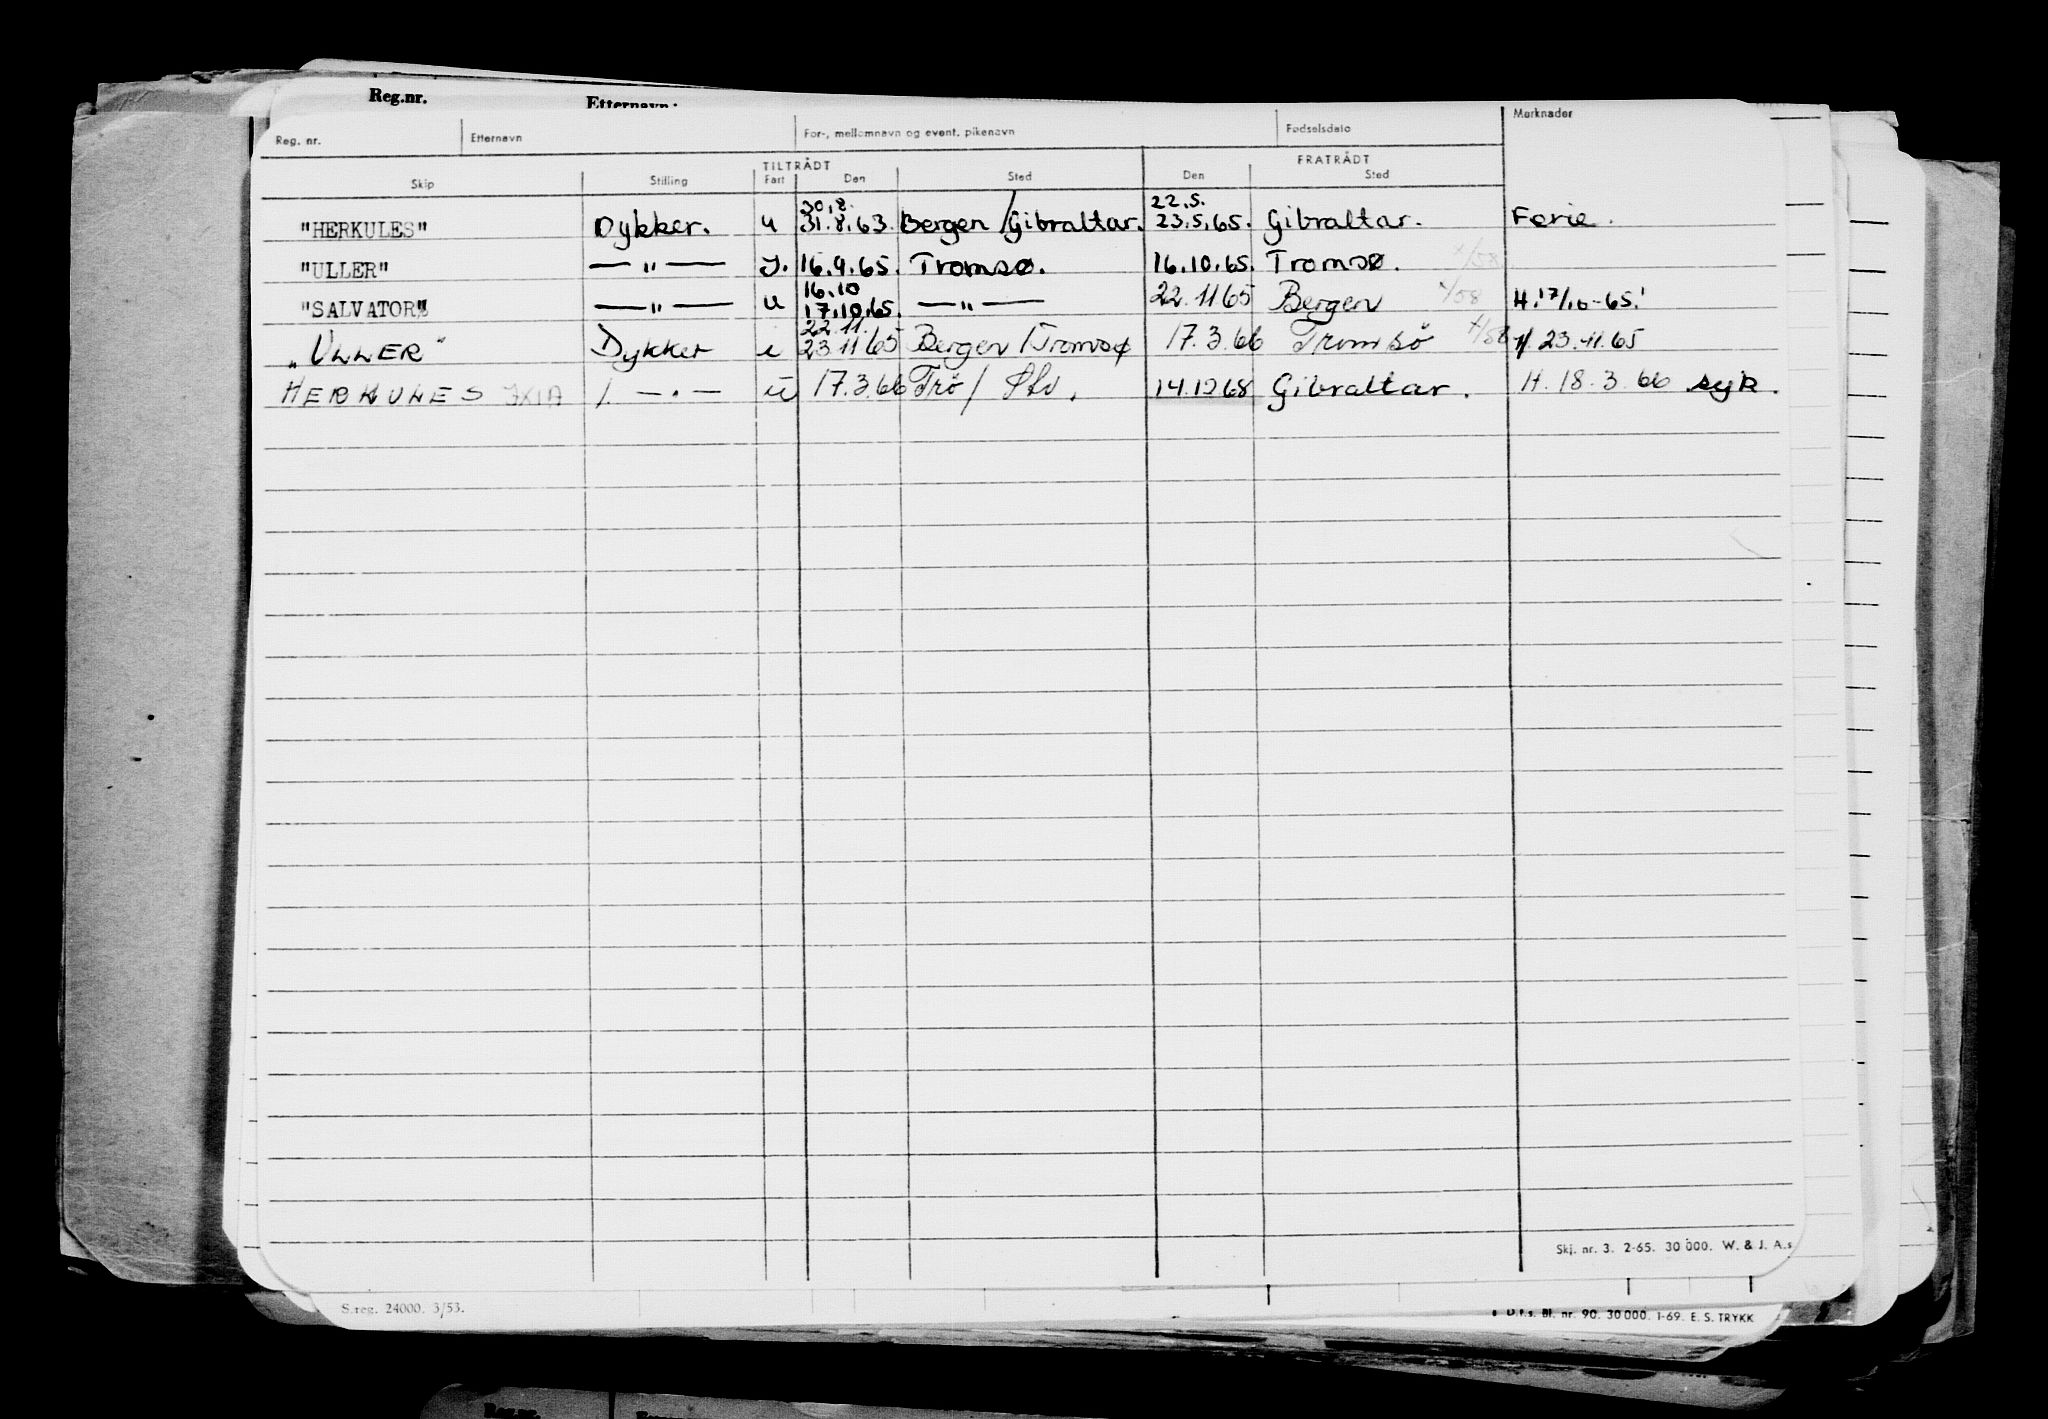 Reg.nr. Etternavn:
Reg. nr. Etternavn For-, mellomnavn og event. pikenavn Fødselsdato Merknader
TILTRÅDT FRATRÅDT
Skip Stilling Fart Den Sted Den Sted
30.8. 22.5.
"HERKULES" Dykker. u 31.8.63. Bergen/Gibraltar. 23.5.65. Gibraltar. Ferie.
"ULLER" —"— J. 16.9.65. Tromsø. 16.10.65. Tromsø. x/58
16.10
"SALVATOR" —"— u 17.10.65. —"— 22.11 65 Bergen x/58 H. 17/10-65.
22.11.
"ULLER" Dykker i 23.11 65 Bergen/Tromsø 17.3.66 Tromsö x/58 H. 23.11.65
HERKULES JXIA —"— u 17.3.66 Trö/ 14.12 68 Gibraltar. H. 18.3.66 syk.
Skj. nr. 3. 2-65. 30 000. W. & J. A.s
S.reg. 24000. 3/53.
D.f.s. Bl. nr. 90. 30 000. 1-69. E. S. TRYKK
Reg.nr.